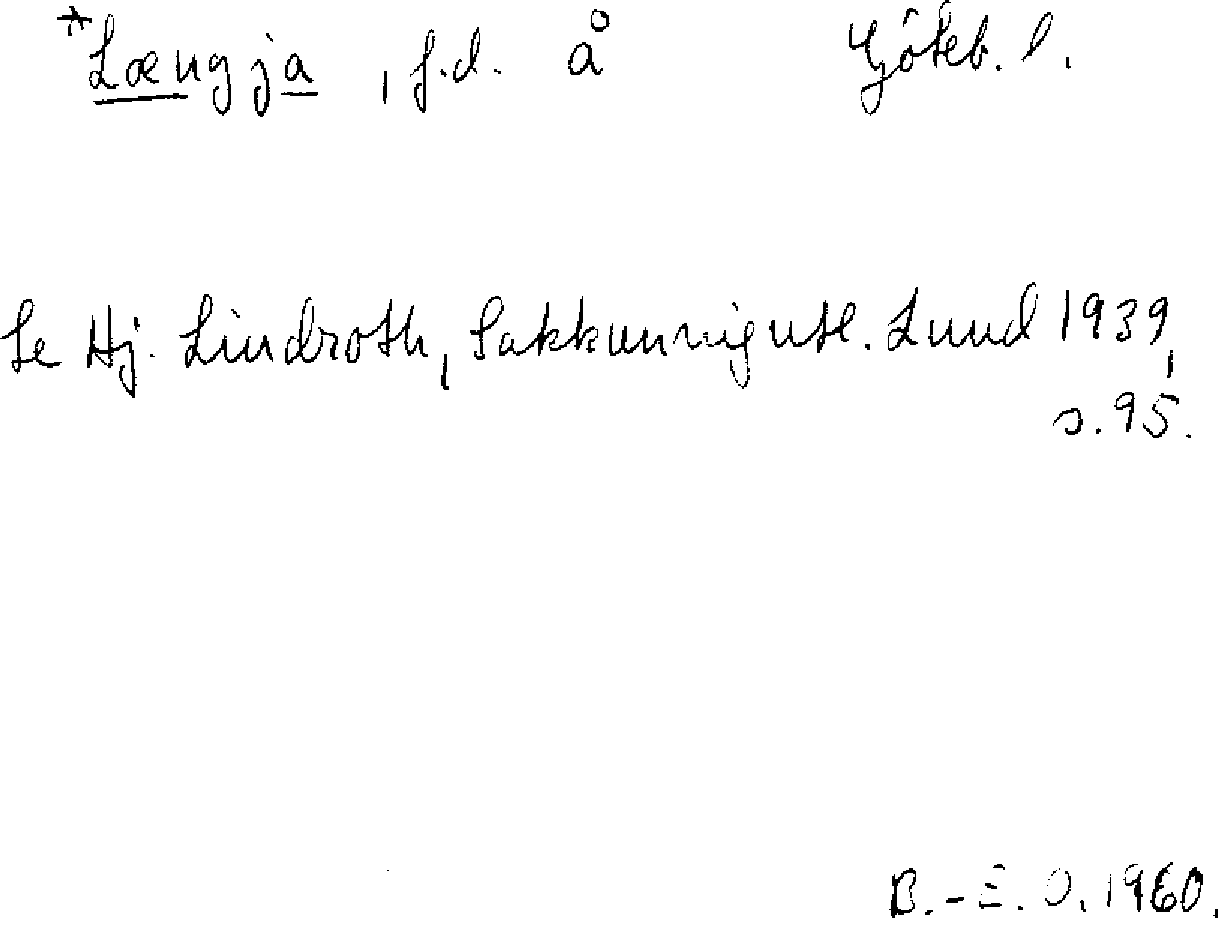 *Længja, f.d. å Göteb. l.
Se Hj. Lindroth, Sakkunnigutl. Lund 1939,
s. 95.
B.-E. O. 1960.